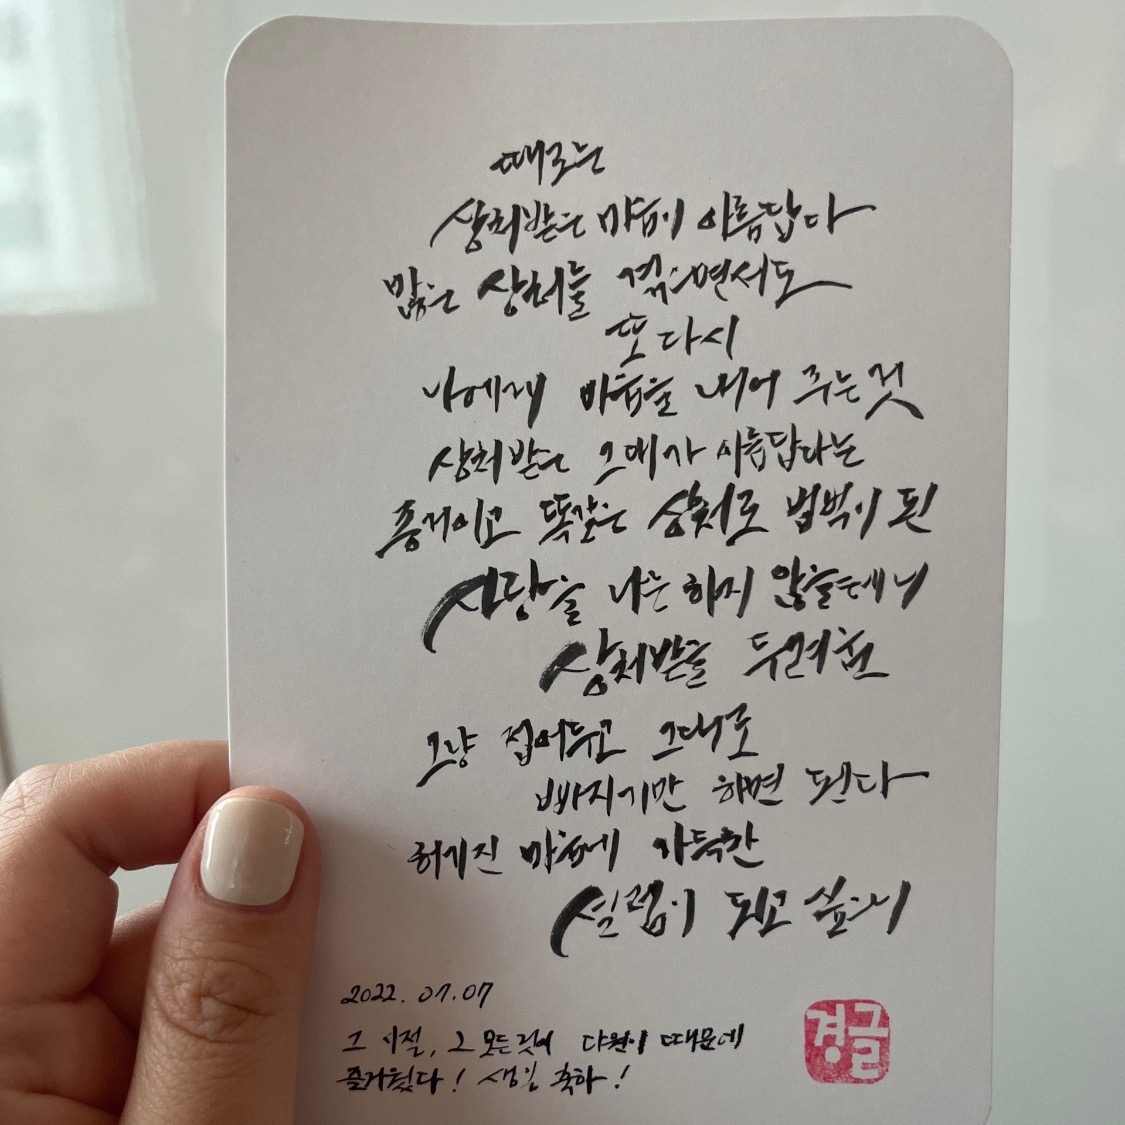 때로는
상처받은 마음이 아름답다
많은 상처를 겪으면서도
또 다시
나에게 마음을 내어 주는것
상처받은 그대가 아름답다는
증거이고 똑같은 상처로 범벅이 된
사랑을 나는 하지 않을테니
상처받을 두려움
그냥 접어두고 그대로
빠지기만 하면 된다
허기진 마음에 가득한
설렘이 되고 싶으니
2022. 07. 07
그 시절, 그 모든것이 다원이 때문에
즐거웠다! 생일 축하!
경글